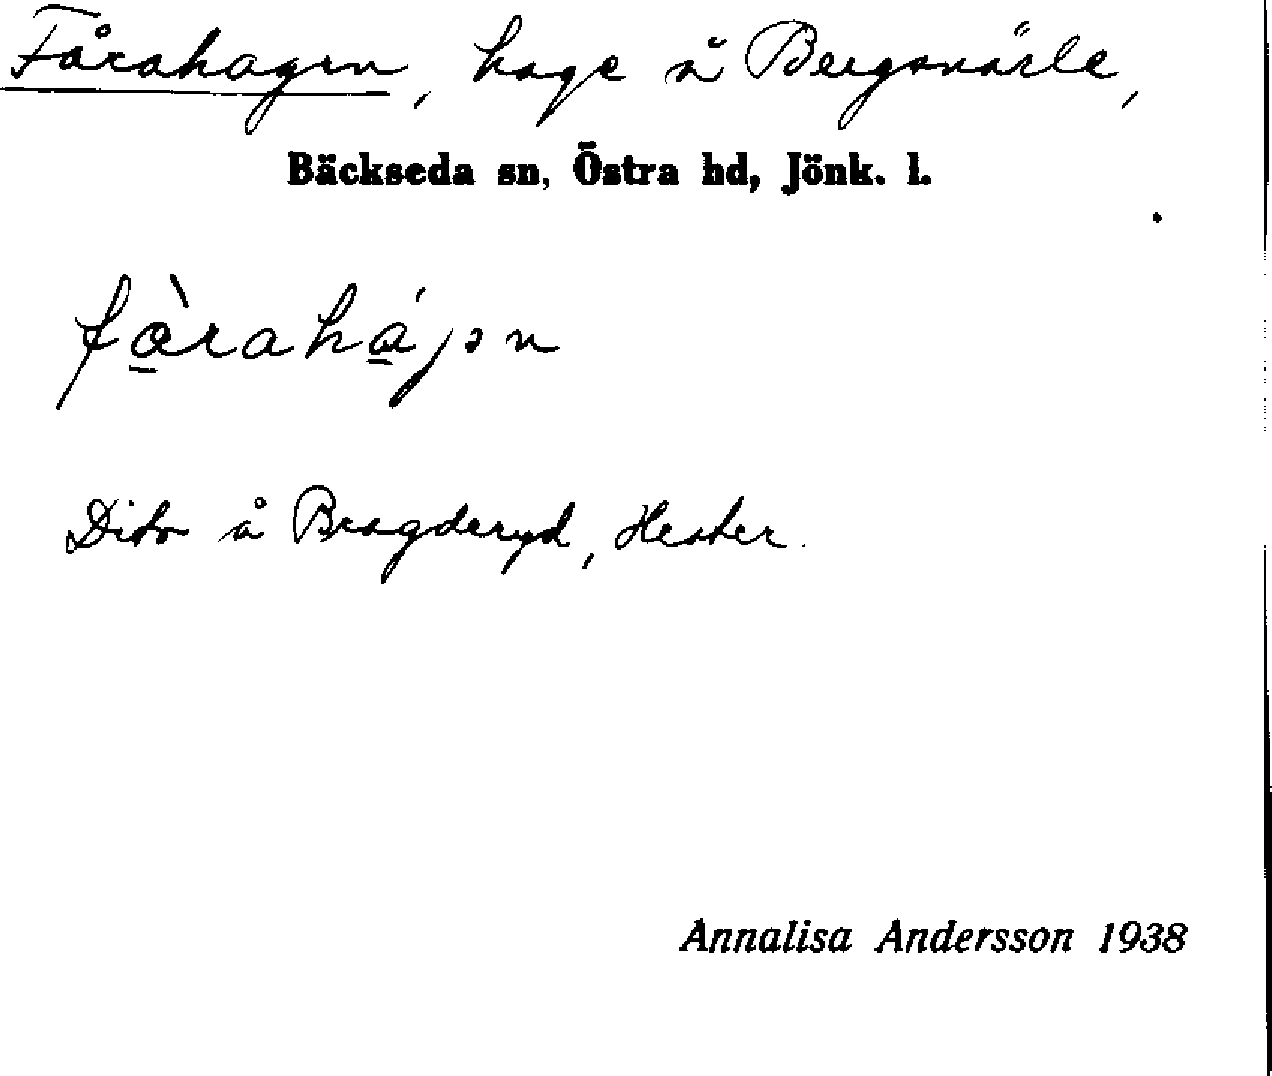 Fårahagen, hage å Bergsnärle,
Bäckseda sn, Östra hd, Jönk. l.
få̱̀rahá̱jən
Dito å Bragderyd, Hester.
Annalisa Andersson 1938